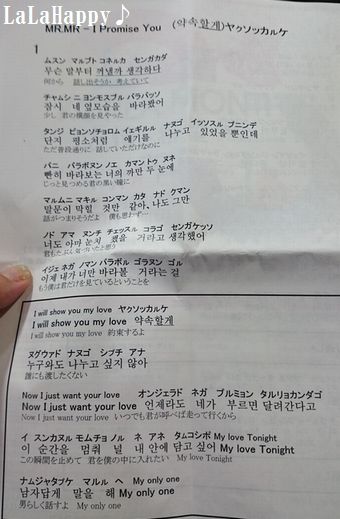 LaLaHappy♪
MR.MR – I Promise You (약속할게) ヤクソッカルケ
1
ムスン マルブト コネルカ センガカダ
무슨 말부터 꺼낼까 생각하다
何から 話し出そうか 考えていて
チャムシ ニ ヨンモスブル パラバッソ
잠시 네 옆모습을 바라봤어
少し 君の横顔を見やった
タンジ ピョンソチョロム イェギルル ナヌゴ イッソスル プニンデ
단지 평소처럼 얘기를 나누고 있었을 뿐인데
ただ普段通りに 話していただけなのに
パニ パラボヌン ノエ カマン トゥ ヌネ
빤히 바라보는 너의 까만 두 눈에
じっと見つめる君の黒い瞳に
マルムニ マキル コンマン カタ ナド クマン
말문이 막힐 것만 같아, 나도 그만
話がつまりそうだよ 僕も思わず…
ノド アマ ヌンチ チェッスル コラゴ センガケッソ
너도 아마 눈치 챘을 거라고 생각했어
イジェ ネガ ノマン パラボル ゴラヌン ゴル
이제 내가 너만 바라볼 거라는 걸
もう僕は君だけを見ているということを
I will show you my love ヤクソッカルケ
I will show you my love 약속할게
I will show you my love 約束するよ
ヌグワド ナヌゴ シプチ アナ
누구와도 나누고 싶지 않아
誰にも渡したくない
Now I just want your love オンジェラド ネガ ブルミョン タルリョカンダゴ
Now I just want your love 언제라도 네가 부르면 달려간다고
Now I just want your love いつでも君が呼べば走って行くから
イ スンカヌル モムチョ ノル ネ アネ タムコシポ My love Tonight
이 순간을 멈춰 널 내 안에 담고 싶어 My love Tonight
この瞬間を止めて 君を僕の中に入れたい My love Tonight
ナムジャタプケ マルル ヘ My only one
남자답게 말을 해 My only one
男らしく話すよ My only one